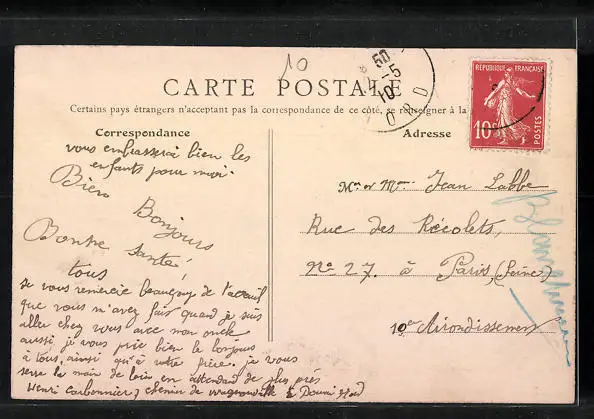 10
CARTE POSTALE
Certains pays étrangers n'acceptant pas la correspondance de ce côté, se renseigner à la
Correspondance
Adresse
RÉPUBLIQUE FRANÇAISE
10c
POSTES
10-5
vous embrasserai bien les
enfants pour moi.
Bien
Bonjours
Bonne Santé
tous
Je vous remercie beaucoup de l'acceuil
que vous m'avez fais quand je suis
aller chez vous avec mon oncle
aussi je vous prie bien le bonjours
à tous, ainsi qu'à votre frère. je vous
serre la main de loin en attendand de plus près
Henri Carbonnier, chemin de à Douai Nord
Mr et Mme Jean Labbe
Rue des Récolets,
No 27. à Paris, (Seine)
10er Airondissement